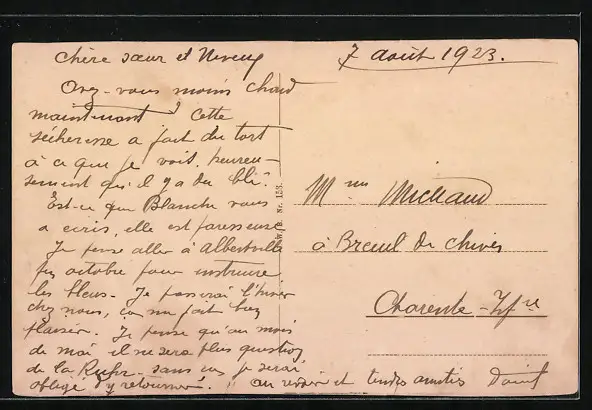 chère sœur et Neveu
7 août 1923.
Avez-vous moins chaud
maintenant? cette
sécheresse a fait du tort
à ce que je voit. heureu-
sement qu'il y a du blé.
Est-ce que Blanche vous
a écris, elle est paresseuse
Je pense aller à Albertville
fin octobre pour instruire
les bleus. Je passerai l'hiver
chez nous, ça me fait bien
plaisir. Je pense qu'au mois
de mai il ne sera plus question
de la Ruhr. sans ça je serai
obligé d'y retourner.
au revoir et tendres amitiés
Nr. 153.
Mme Michaud
à Breuil de Chives
Charente-Infre